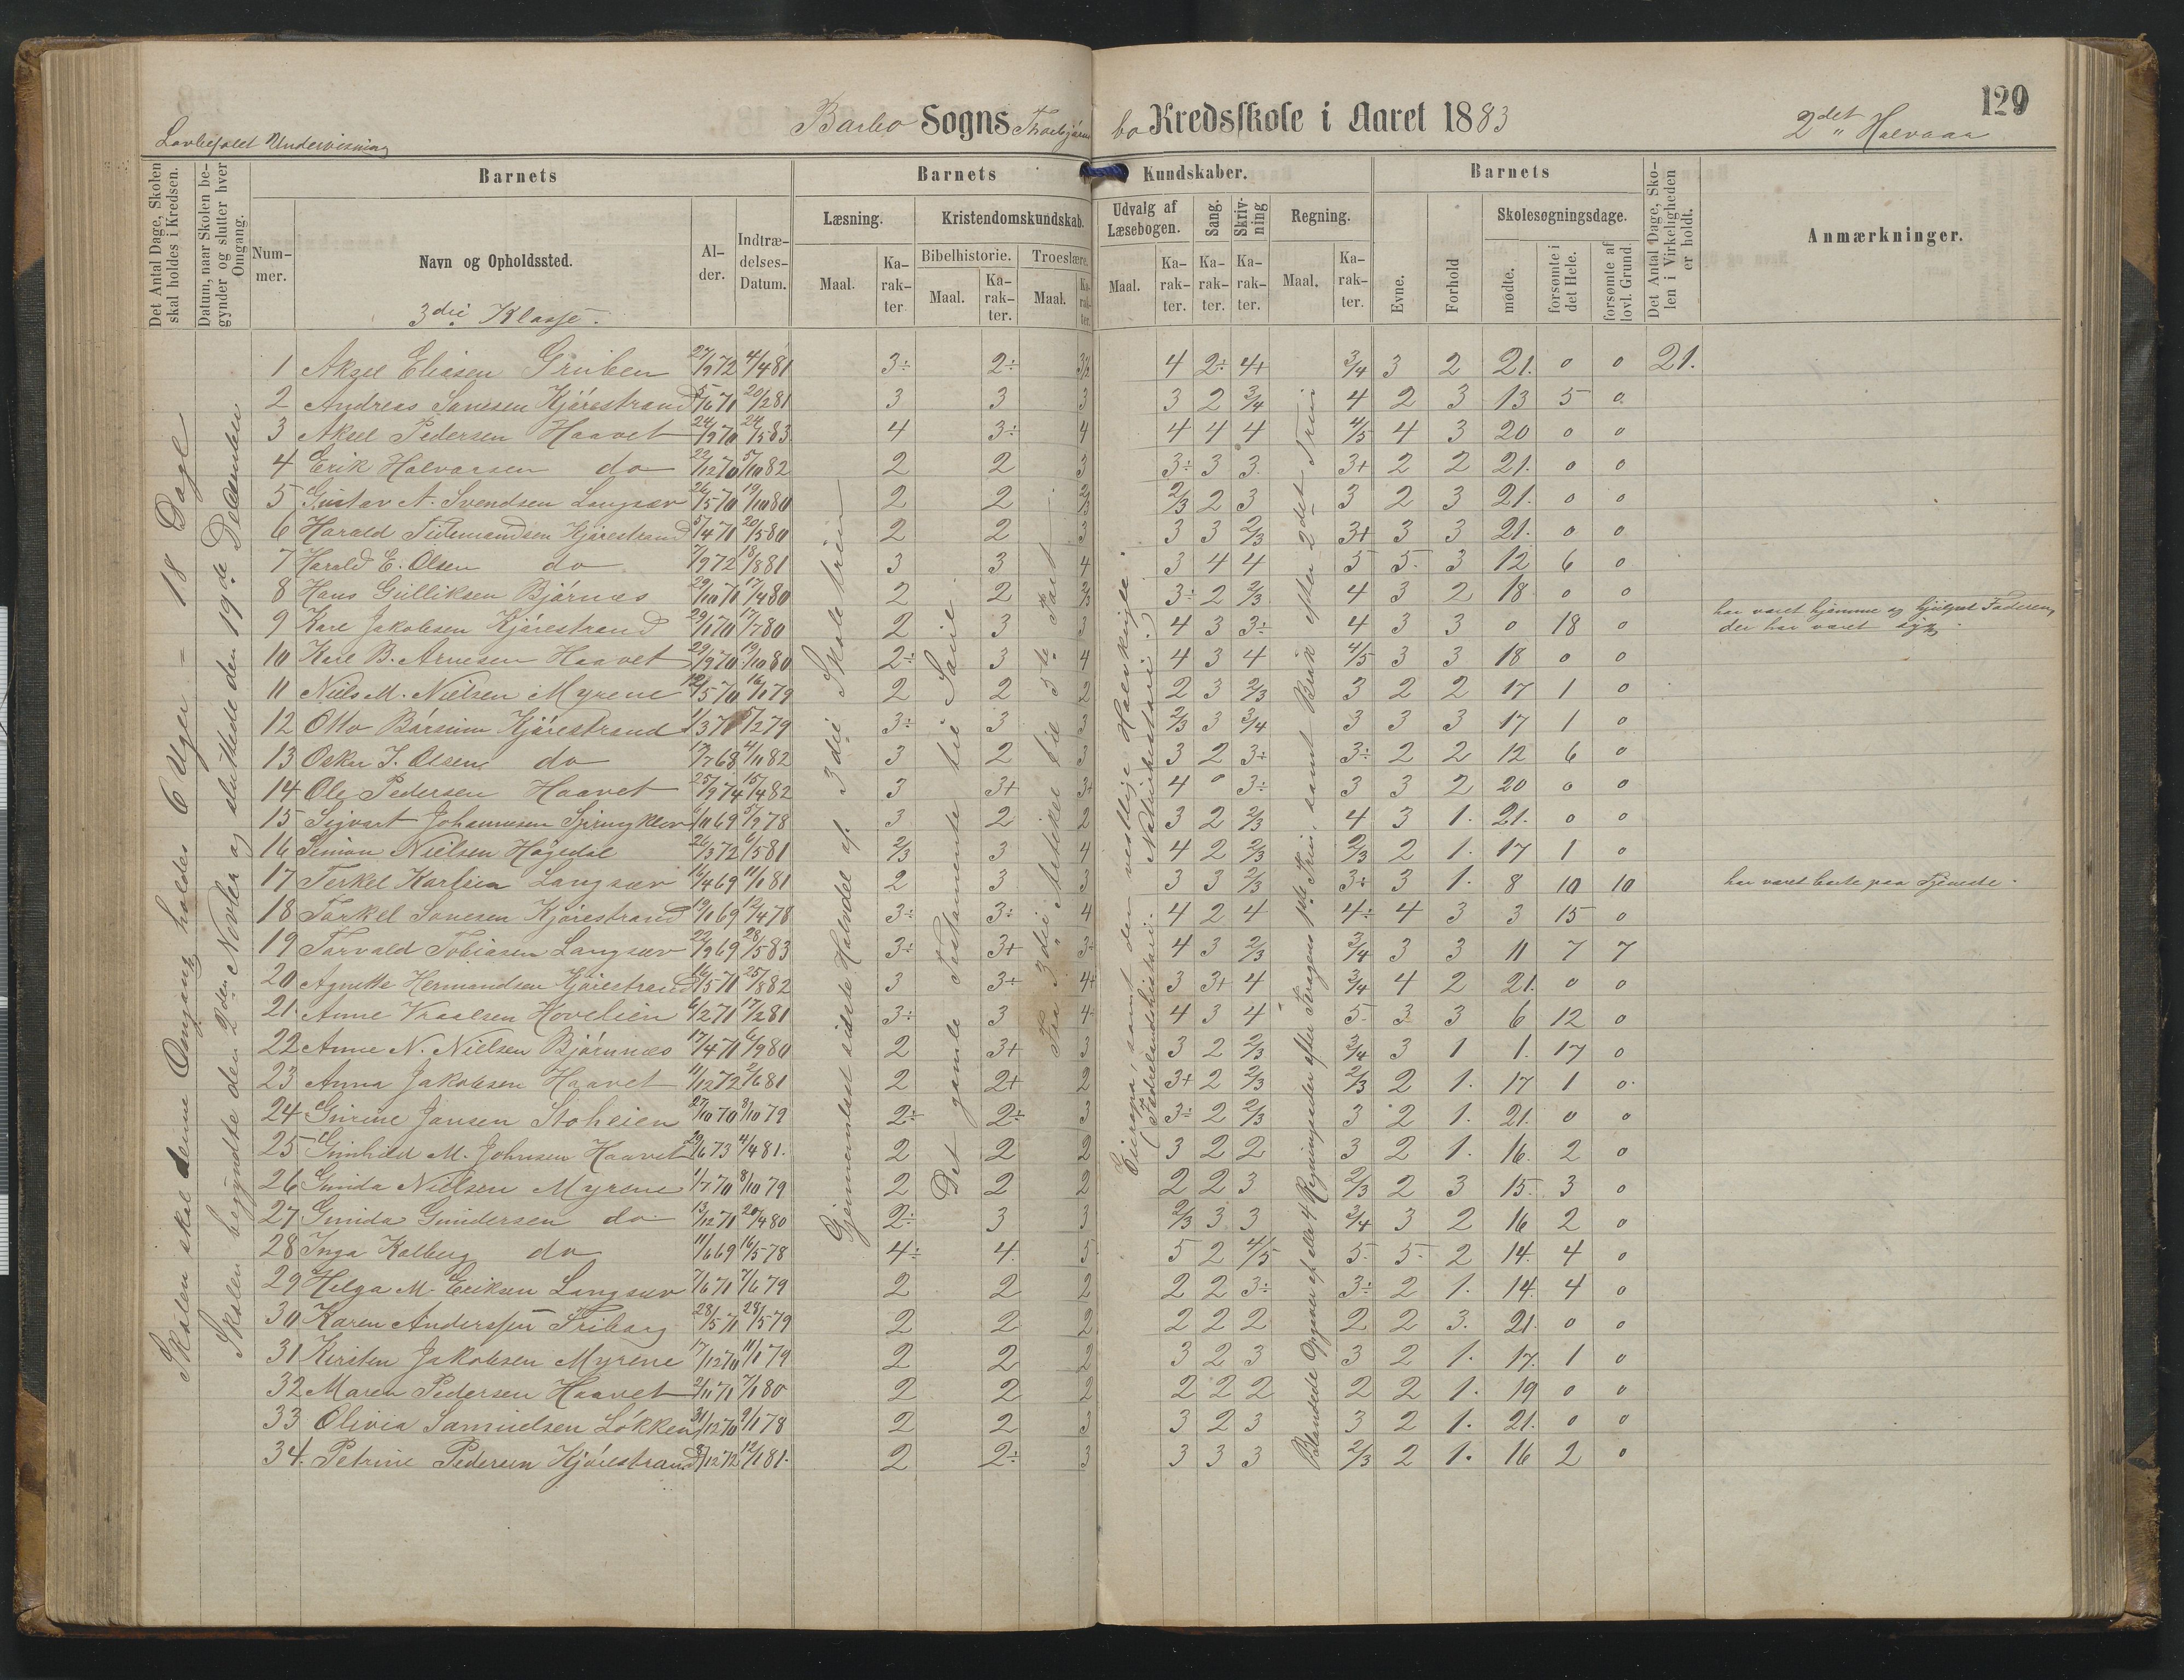 129
Barbo Sogns Thorbjörns bo Kredsskole i Aaret 1883 2det Halvaar
Lovbefalet Undervisning
Det Antal Dage, Skolen skal holdes i Kredsen.
Datum, naar Skolen begynder og slutter hver Omgang.
Barnets
Barnets
Kundskaber.
Barnets
Det Antal Dage, Skolen i Virkeligheden er holdt.
Anmærkninger.
Nummer.
Navn og Opholdssted.
Alder.
Indtrædelses-Datum.
Læsning.
Kristendomskundskab.
Udvalg af Læsebogen.
Sang.
Skrivning
Regning.
Evne.
Forhold
Skolesøgningsdage.
Bibelhistorie.
Troeslære.
Maal.
Karakter
Maal.
Karakter.
Maal.
Karakter.
Maal.
Karakter.
Karakter.
Karakter.
Maal.
Karakter.
mødte.
forsømte i det Hele.
forsømte af lovl. Grund.
3die Klasse.
Skolen skal denne Omgang holdes 6 Uger = 18 Dage
Skolen begyndte den 2den Novber og sluttede den 19de December
Gjennemlæst sidste Halvdel af 3die Skoletrin
Det gamle Testamente til Saul
Fra 3die Artikel til 5te Part
Europa, samt den vestlige Halvkugle.
(Fædrelandshistorie. Naturhistorie.)
Blandede Opgaver af alle 4 Regningsarter efter Kragens 1ste Trin, samt Brøk efter 2det Trin
1 Aksel Eliasen Gruben 27/9 72 4/4 81 3÷ 2÷ 3/2 4 2÷ 4+ 3/4 3 2 21. 0 0 21.
2 Andreas Sanesen Kjørestrand 5/6 71 20/2 81 3 3 3 3 2 3/4 4 2 3 13 5 0
3 Aksel Pedersen Haavet 24/9 70 24/5 83 4 3÷ 4 4 4 4 4/5 4 3 20 0 0
4 Erik Halvorsen do 22/12 70 5/10 82 2 2 3 3÷ 3 3 3+ 2 2 21. 0 0
5 Gustav A. Svendsen Langsæv 26/5 70 19/10 80 2 2 2/3 2/3 2 3 3 2 3 21. 0 0
6 Harald Tidemandsen Kjørestrand 5/4 71 20/5 80 2 2 3 3 3 2/3 3+ 3 3 21. 0 0
7 Harald E. Olsen do 7/9 72 18/8 81 3 3 4 3 4 4 5 5 3 12 6 0
8 Hans Gulliksen Bjørnæs 29/10 71 17/4 80 2 2 2/3 3÷ 2 2/3 4 3 2 18 0 0
9 Karl Jakobsen Kjørestrand 29/1 70 17/7 80 2 3 3 4 3 3÷ 4 3 3 0 18 0 har været hjemme og hjulpet Faderen, der har været syg.
10 Karl B. Arnesen Haavet 29/9 70 19/10 80 2÷ 3 4 4 3 4 4/5 3 3 18 0 0
11 Niels M. Nielsen Myrene 12/5 70 16/1 79 2 2 2 2 3 2/3 3 2 2 17 1 0
12 Otto Børsum Kjørestrand 1/3 71 5/2 79 3÷ 3 3 2/3 3 3/4 3 3 3 17 1 0
13 Oskar J. Olsen do 17/7 68 4/11 82 3 2 3 3 2 3÷ 3÷ 2 2 12 6 0
14 Ole Pedersen Haavet 25/9 74 15/4 82 3 3+ 3+ 4 0 3÷ 3 3 2 20 0 0
15 Sigvart Johannesen Springklev 6/10 69 5/9 78 3 2 2 3 2 2/3 4 3 1. 21. 0 0
16 Simon Nielsen Høgedal 26/3 72 6/5 81 2/3 3 4 4 2 2/3 2/3 2 1. 17 1 0
17 Terkel Karlsen Langsæv 16/4 69 11/1 81 2 3 3 3 3 2/3 3÷ 3 1. 8 10 10 har været borte paa Tjeneste.
18 Torkel Sanesen Kjørestrand 19/1 69 12/4 78 3÷ 3÷ 4 4 2 4 4÷ 4 3 3 15 0
19 Torvald Tobiasen Langsæv 22/9 69 28/5 83 3÷ 3+ 3+ 4 3 2/3 3/4 3 3 11 7 7
20 Agnethe Hermandsen Kjørestrand 16/5 71 25/8 82 3 3+ 4+ 3 3+ 4 3/4 4 2 21. 0 0
21. Anne Knudsen Hovelien 6/2 71 17/2 81 3÷ 3 4 4 3 4 5 3 3 6 12 0
22 Anne N. Nielsen Bjørnæs 17/4 71 6/9 80 2 3+ 3 3 2 2/3 3/4 3 1 1. 17 0
23 Anna Jakobsen Haavet 11/12 72 2/6 81 2 2+ 2 3+ 2 2/3 2/3 2 1. 17 1 0
24 Gurine Jansen Stoheien 27/10 70 8/10 79 2÷ 2÷ 3 3÷ 2 2/3 3 2 1. 21. 0 0
25 Gunhild M. Johnsen Haavet 29/6 73 4/4 81. 2 2 2 3 2 2 3 2 1. 16. 2 0
26 Gunda Nielsen Myrene 1/7 70 8/10 79 2 2 2 2 2 3 2/3 2 3 15. 3 0
27 Gunda Gundersen do 13/12 71 20/4 80 2÷ 3 3 2/3 3 3 3/4 3 2 16 2 0
28 Inga Kolberg do 11/6 69 16/5 78 4÷ 4 5 5 2 4/5 5 5 2 14. 4 0
29 Helga M. Eriksen Langsæv 7/6 71 7/6 79 2 2 2 2 2 3÷ 3÷ 2 1. 14. 4 0
30 Karen Anderssen Friberg 28/5 71 28/5 79 2 2 2 2 2 2 2 2 3. 21. 0 0
31 Kirsten Jakobsen Myrene 17/12 70 11/1 79 2 2 2 3 2 3 3 2 1. 17. 1 0
32 Maren Pedersen Haavet 2/11 71 7/1 80 2 2 2 2 2 2 2 2 1. 19 0 0
33 Olivia Samuelsen Løkken 31/12 70 9/1 78 2 2 3 3 2 3 3 2 1. 21. 0 0
34. Petrine Pedersen Kjørestrand 8/12 72 12/1 81. 2 2÷ 3 3 3 3 2/3 2 1. 16 2 0